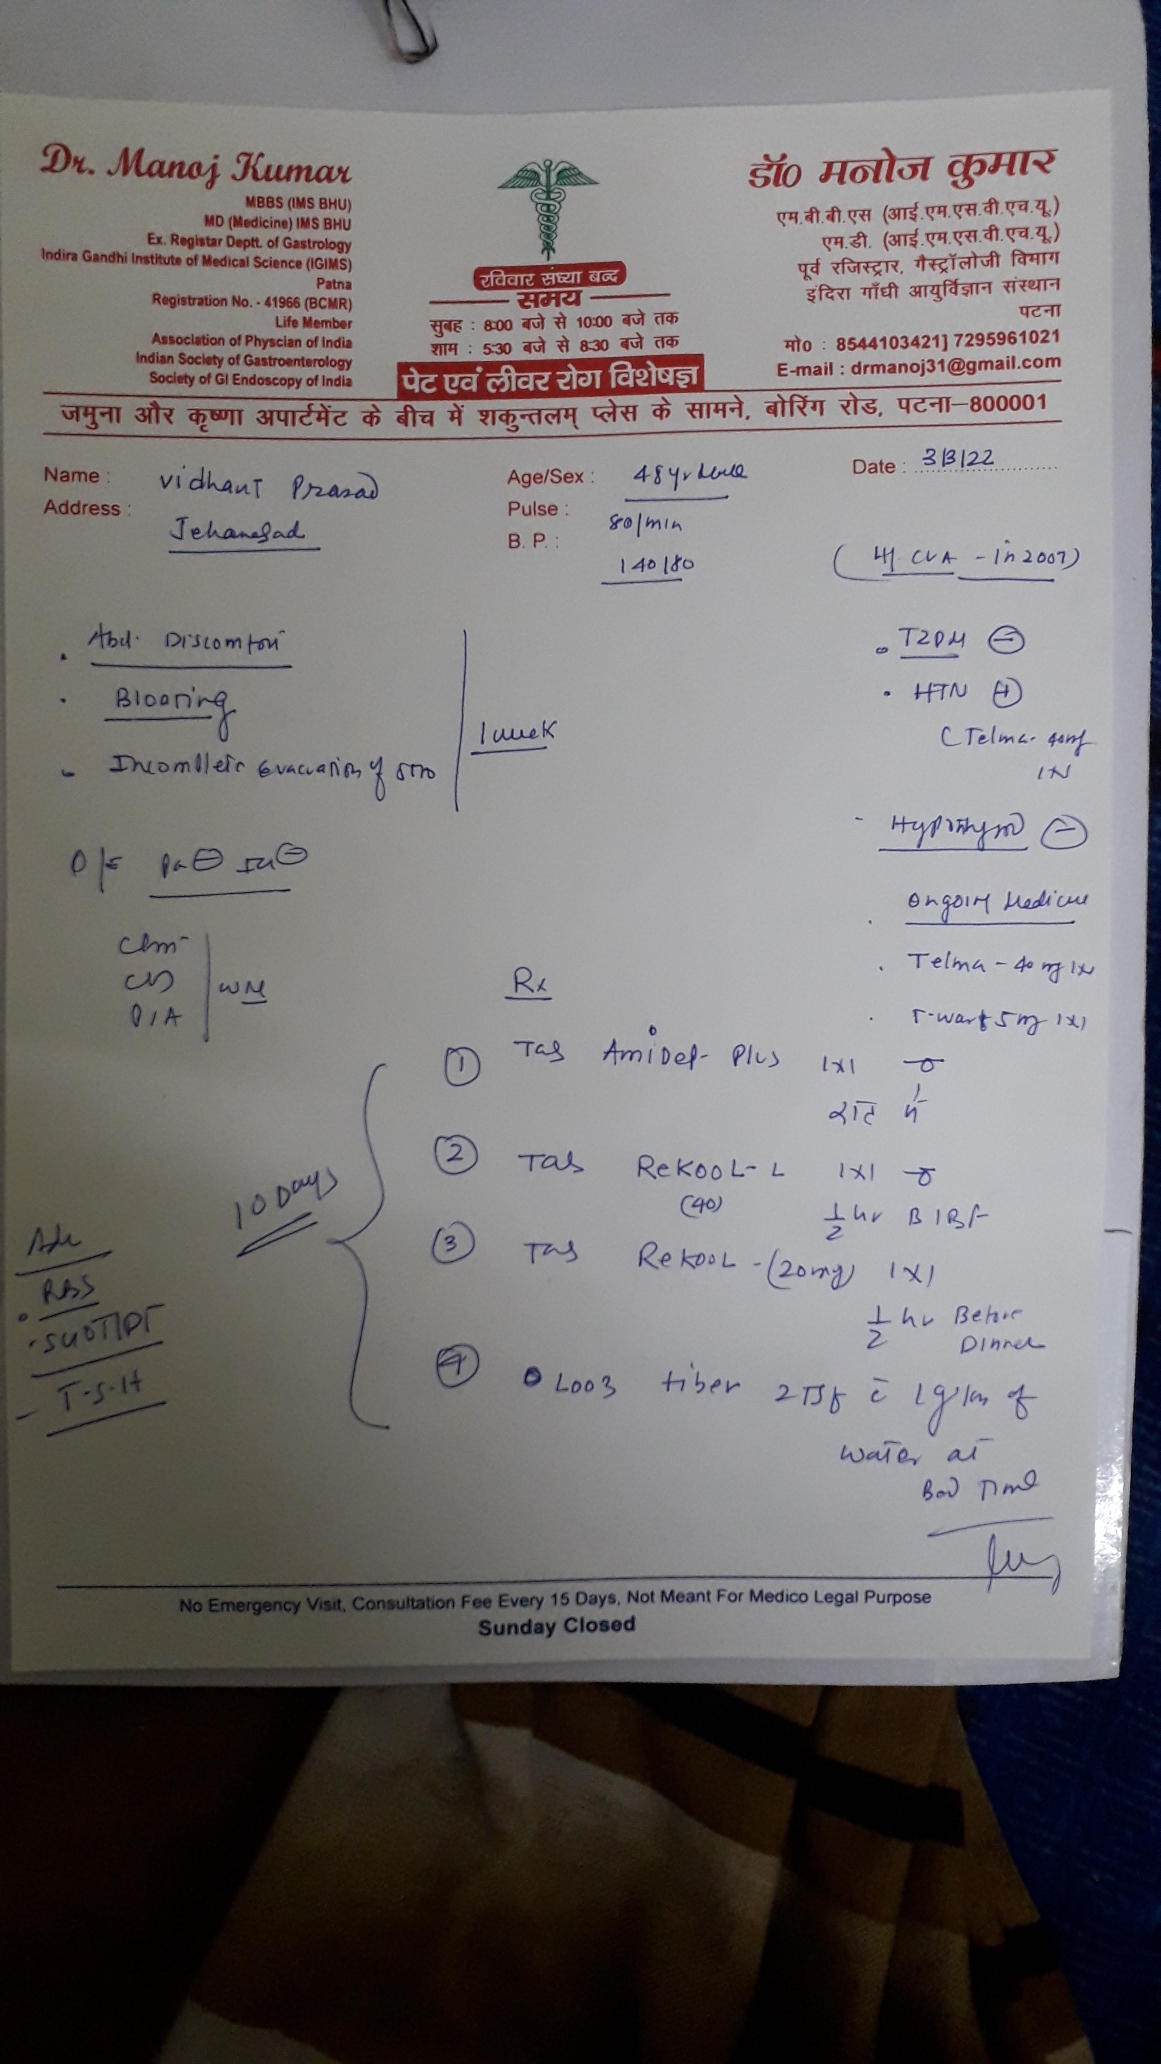 Dr. Manoj Kumar
MBBS (IMS BHU)
MD (Medicine) IMS BHU
Ex. Registar Deptt. of Gastrology
Indira Gandhi Institute of Medical Science (IGIMS)
Patna
Registration No. - 41966 (BCMR)
Life Member
Association of Physcian of India
Indian Society of Gastroenterology
Society of GI Endoscopy of India
रविवार संध्या बन्द
समय
सुबह : 8:00 बजे से 10:00 बजे तक
शाम : 5:30 बजे से 8:30 बजे तक
पेट एवं लीवर रोग विशेषज्ञ
डॉ० मनोज कुमार
एम.बी.बी.एस (आई.एम.एस.वी.एच.यू.)
एम.डी. (आई.एम.एस.वी.एच.यू.)
पूर्व रजिस्ट्रार, गैस्ट्रॉलोजी विभाग
इंदिरा गाँधी आयुर्विज्ञान संस्थान
पटना
मो० : 8544103421] 7295961021
E-mail : drmanoj31@gmail.com
जमुना और कृष्णा अपार्टमेंट के बीच में शकुन्तलम् प्लेस के सामने, बोरिंग रोड, पटना–800001
Name : Vidhant Prasad
Address : Jehanabad
Age/Sex : 48yr
Pulse : 80/min
B. P. : 140/80
Date : 3/3/22
CVA - in 2007)
Abd. Discomfort
Bloating
Incomplete evacuation of
1 week
T2DM ⊖
HTN ⊕
Telma- 40mg
Hypothyroid ⊖
O/E
P/A
Ongoing Medicine
Telma - 40 mg
5 mg 1x1
Rx
① Tab Amidep- Plus 1x1
रात में
② Tab Rekool-L 1x1
(40) 1/2 hr B/BF
③ Tab Rekool -(20mg) 1x1
1/2 hr Before
Dinner
④ Looz fiber 2 TSF c̄ 1 of
water at
Bed Time
10 Days
Adv
RBS
T-S-H
No Emergency Visit, Consultation Fee Every 15 Days, Not Meant For Medico Legal Purpose
Sunday Closed